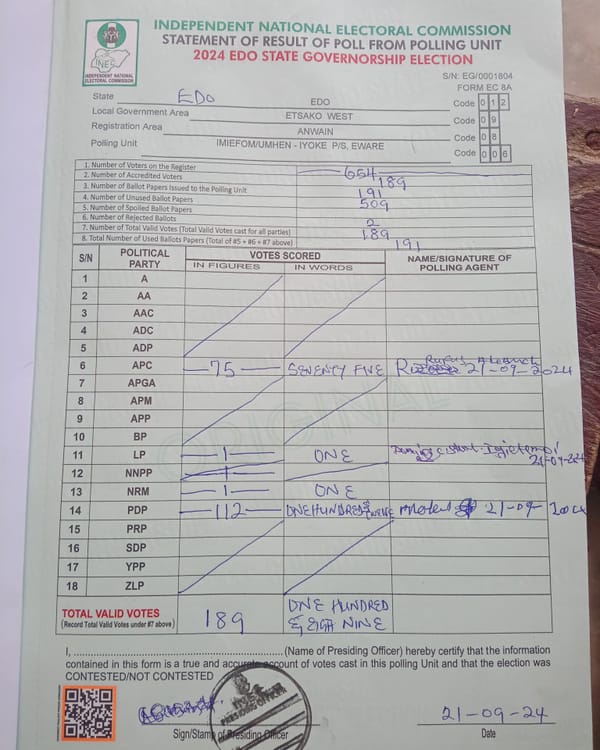 INDEPENDENT NATIONAL ELECTORAL COMMISSION
STATEMENT OF RESULT OF POLL FROM POLLING UNIT
2024 EDO STATE GOVERNORSHIP ELECTION
INEC
INDEPENDENT NATIONAL
ELECTORAL COMMISSION
S/N: EG/0001604
FORM EC 8A
State EDO EDO Code 0 1 2
Local Government Area ETSAKO WEST Code 0 9
Registration Area ANWAIN Code 0 8
Polling Unit IMIEFOM/UMHEN - IYOKE P/S, EWARE Code 0 0 6
1. Number of Voters on the Register 654
2. Number of Accredited Voters 189
3. Number of Ballot Papers Issued to the Polling Unit 191
4. Number of Unused Ballot Papers 509
5. Number of Spoiled Ballot Papers
6. Number of Rejected Ballots 2
7. Number of Total Valid Votes (Total Valid Votes cast for all parties) 189
8. Total Number of Used Ballots Papers (Total of #5 + #6 + #7 above) 191
S/N POLITICAL PARTY VOTES SCORED NAME/SIGNATURE OF POLLING AGENT
IN FIGURES IN WORDS
1 A
2 AA
3 AAC
4 ADC
5 ADP
6 APC 75 SEVENTY FIVE 21-09-2024
7 APGA
8 APM
9 APP
10 BP
11 LP 1 ONE 21-09-24
12 NNPP
13 NRM 1 ONE
14 PDP 112 ONE HUNDRED & TWELVE 21-09-
15 PRP
16 SDP
17 YPP
18 ZLP
TOTAL VALID VOTES 189 ONE HUNDRED
(Record Total Valid Votes under #7 above) & EIGHT NINE
I, (Name of Presiding Officer) hereby certify that the information
contained in this form is a true and accurate account of votes cast in this polling Unit and that the election was
CONTESTED/NOT CONTESTED
PRESIDING OFFICER
21-09-24
Sign/Stamp of Presiding Officer Date
ORIGINAL